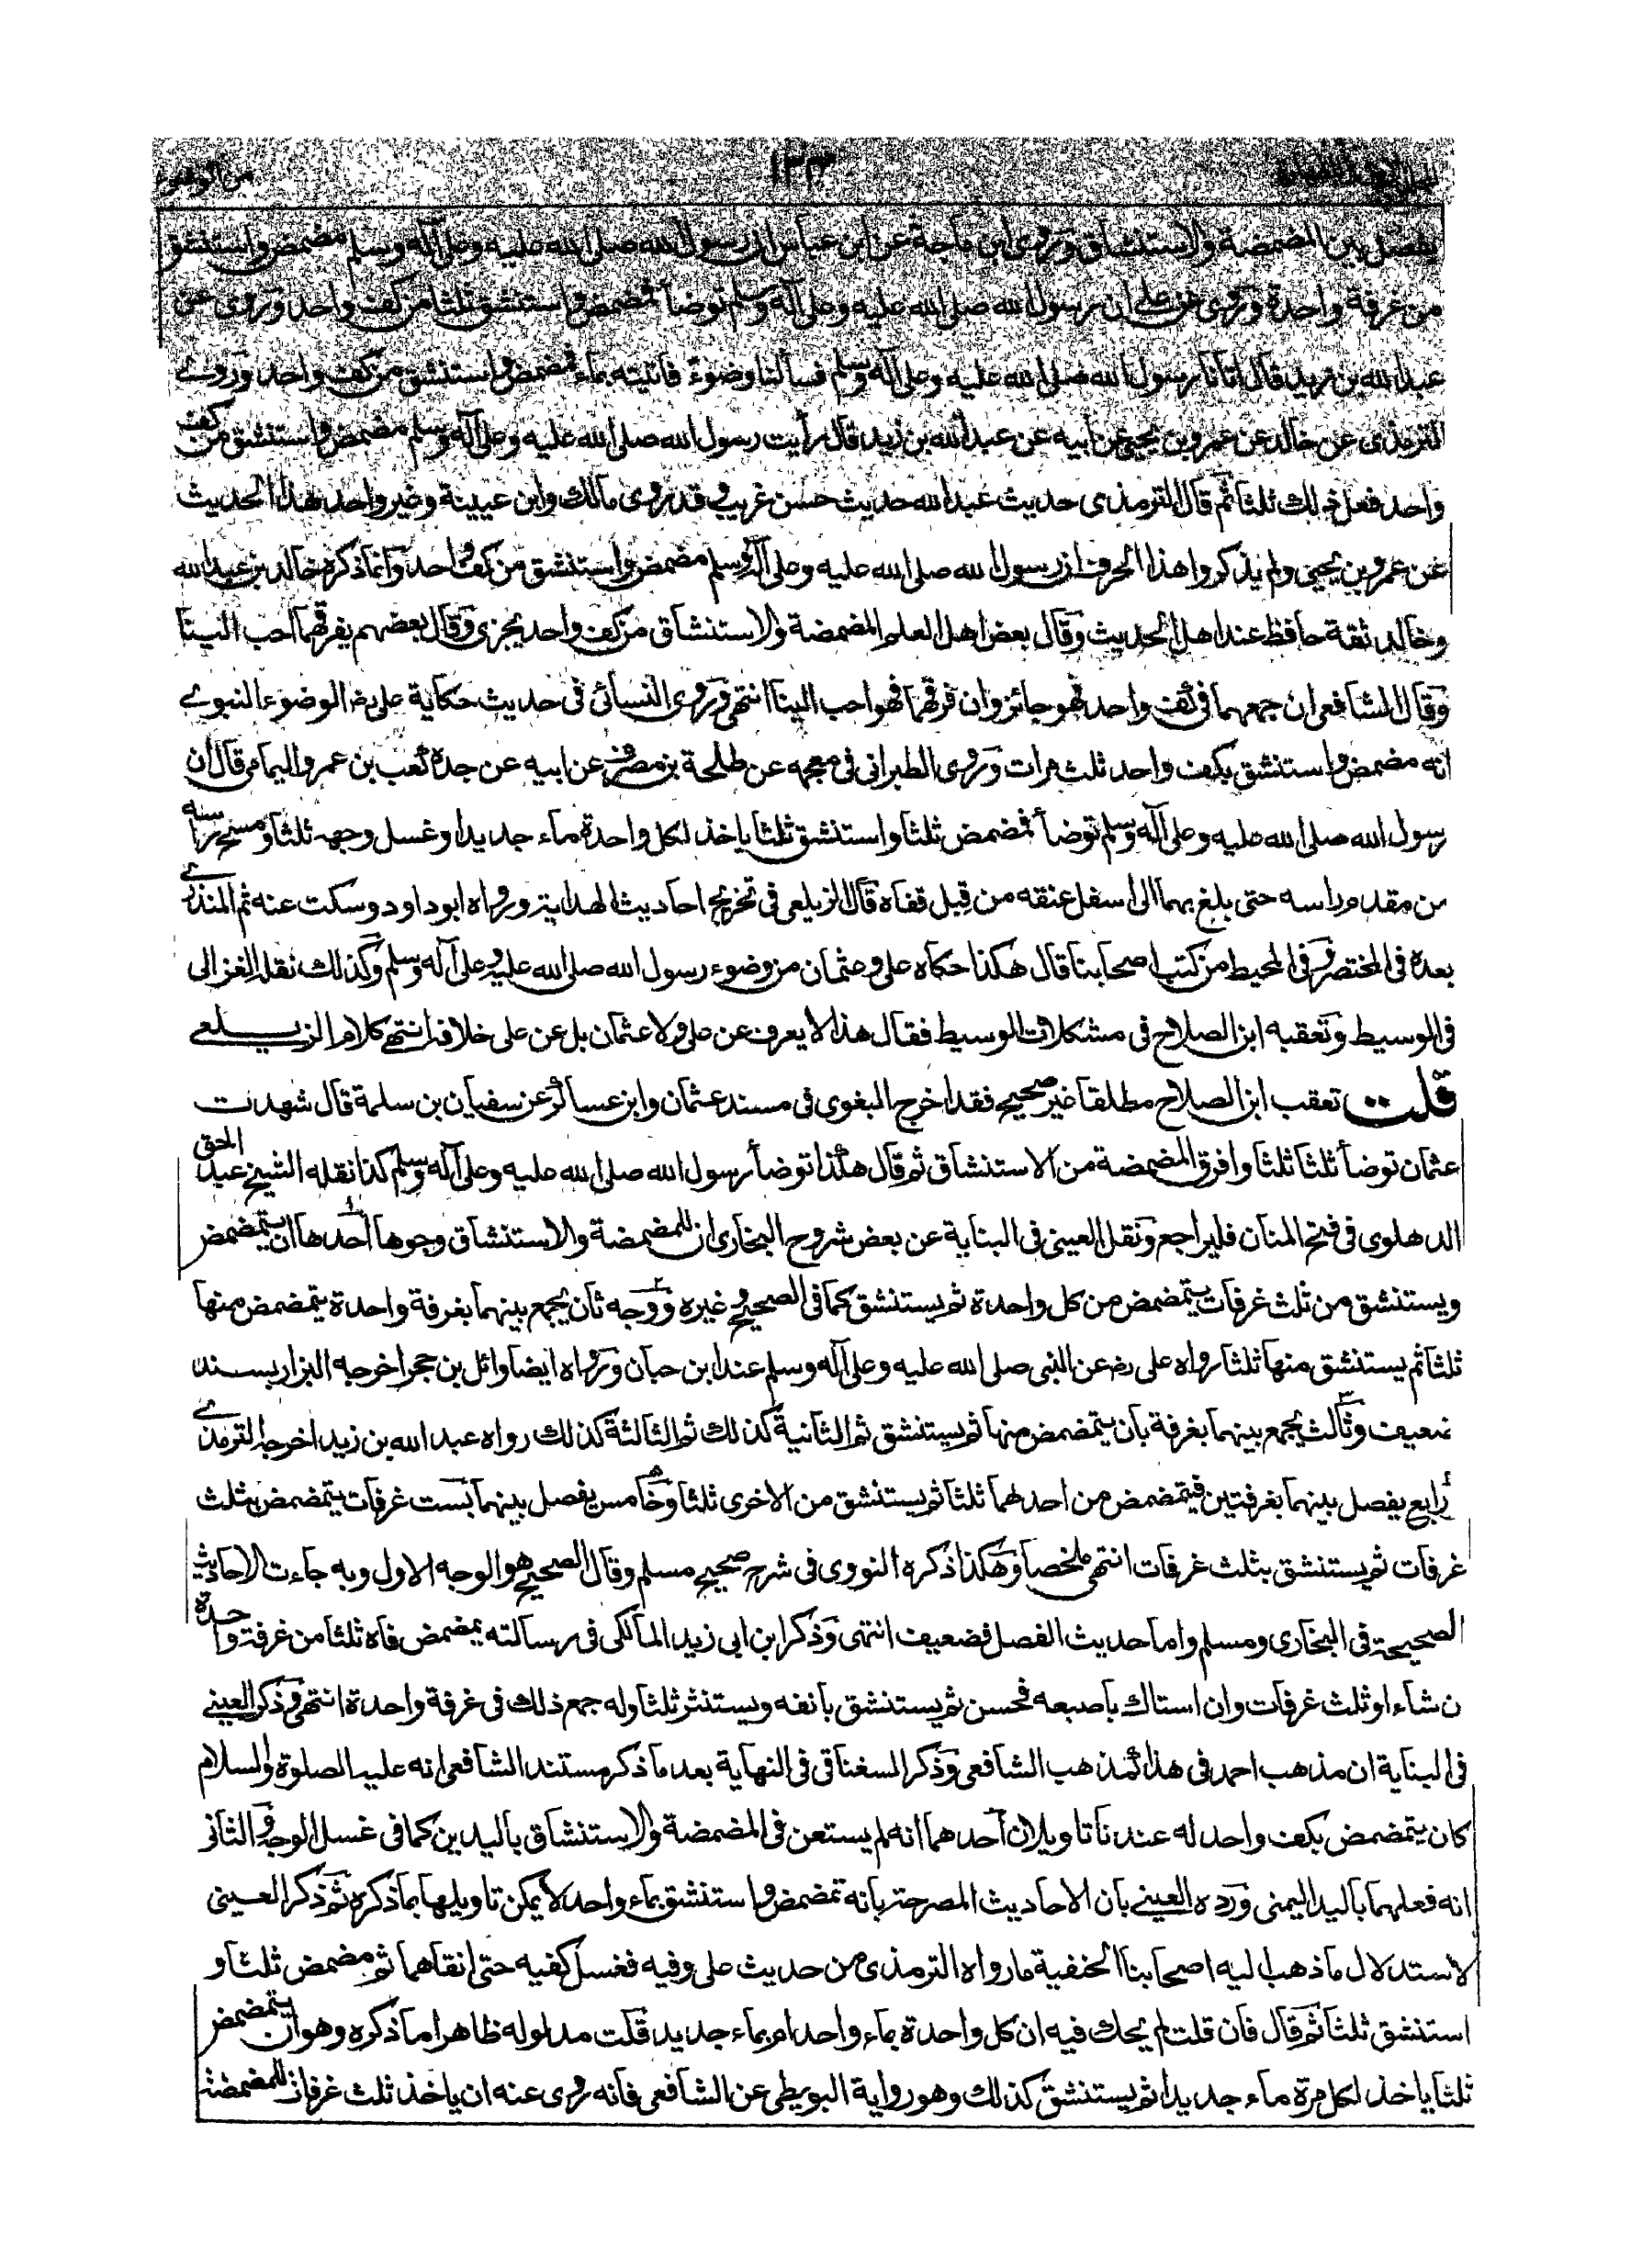 ١٣٣
يفصل بين المضمضة والاستنشاق وروى ابن ماجة عن ابن عباس ان رسول الله صلى الله عليه وعلى آله وسلم مضمض واستنشق
من غرفة واحدة وروى عن على ان رسول الله صلى الله عليه وعلى آله وسلم توضأ فمضمض واستنشق ثلثا من كف واحد وروى عن
عبد الله بن زيد قال اتانا رسول الله صلى الله عليه وعلى آله وسلم فسألنا وضوءً فاتيته بماء فمضمض واستنشق من كف واحد وروے
الترمذى عن خالد عن عمرو بن يحيى عن ابيه عن عبد الله بن زيد قال رأيت رسول الله صلى الله عليه وعلى آله وسلم مضمض واستنشق من كف
واحد فعل ذلك ثلثا ثم قال الترمذى حديث عبد الله حديث حسن غريب وقد روى مالك وابن عيينة وغير واحد هذا الحديث
عن عمرو بن يحيى ولم يذكروا هذا الحرف ان رسول الله صلى الله عليه وعلى آله وسلم مضمض واستنشق من كف واحد وانما ذكره خالد بن عبد الله
وخالد ثقة حافظ عند اهل الحديث وقال بعض اهل العلم المضمضة والاستنشاق من كف واحد يجزى وقال بعضهم يفرقهما احب الينا
وقال الشافعى ان جمعهما فى كف واحد فهو جائز وان فرقهما فهو احب الينا انتهى وروى النسائى فى حديث حكاية على رض الوضوء النبوے
انه مضمض واستنشق بكف واحد ثلث مرات وروى الطبرانى فى معجمه عن طلحة بن مصرف عن ابيه عن جده كعب بن عمرو اليمامى قال ان
رسول الله صلى الله عليه وعلى آله وسلم توضأ فمضمض ثلثا واستنشق ثلثا ياخذ لكل واحدة ماء جديدا وغسل وجهه ثلثا ومسح راسه
من مقدم راسه حتى بلغ بهما الى اسفل عنقه من قِبل قفاه قال الزيلعى فى تخريج احاديث الهداية ورواه ابو داود وسكت عنه ثم المنذرے
بعده فى المختصر وفى المحيط من كتب اصحابنا قال هكذا حكاه على وعثمان من وضوء رسول الله صلى الله عليه وعلى آله وسلم وكذلك نقله الغزالى
فى الوسيط وتعقبه ابن الصلاح فى مشكلات الوسيط فقال هذا لا يعرف عن على ولا عثمان بل عن على خلافه انتهى كلام الزيلعے
قلت تعقب ابن الصلاح مطلقا غير صحيح فقد اخرج البغوى فى مسند عثمان وابن عساكر عن سفيان بن سلمة قال شهدت
عثمان توضأ ثلثا ثلثا وافرق المضمضة من الاستنشاق ثم قال هكذا توضأ رسول الله صلى الله عليه وعلى آله وسلم كذا نقله الشيخ عبد الحق
الدهلوى فى فتح المنان فليراجع ونقل العينى فى البناية عن بعض شروح البخارى ان للمضمضة والاستنشاق وجوها احدها ان يتمضمض
ويستنشق من ثلث غرفات يتمضمض من كل واحدة ثم يستنشق كما فى الصحيح وغيره ووجه ثان يجمع بينهما بغرفة واحدة يتمضمض منها
ثلثا ثم يستنشق منها ثلثا رواه على رض عن النبى صلى الله عليه وعلى آله وسلم عند ابن حبان ورواه ايضا وائل بن حجر اخرجه البزار بسند
ضعيف وثالث يجمع بينهما بغرفة بان يتمضمض منها ثم يستنشق ثم الثانية كذلك ثم الثالثة كذلك رواه عبد الله بن زيد اخرجه الترمذے
رابع يفصل بينهما بغرفتين فيتمضمض من احدهما ثلثا ثم يستنشق من الاخرى ثلثا وخامس يفصل بينهما بست غرفات يتمضمض بثلث
غرفات ثم يستنشق بثلث غرفات انتهى ملخصا وهكذا ذكره النووى فى شرح صحيح مسلم وقال الصحيح هو الوجه الاول وبه جاءت الاحاديث
الصحيحة فى البخارى ومسلم واما حديث الفصل فضعيف انتهى وذكر ابن ابى زيد المالكى فى رسالته يمضمض فاه ثلثا من غرفة واحدة
ن شاء او ثلث غرفات وان استاك باصبعه فحسن ثم يستنشق بانفه ويستنثر ثلثا وله جمع ذلك فى غرفة واحدة انتهى وذكر العينے
فى البناية ان مذهب احمد فى هذا كمذهب الشافعى وذكر السغناقى فى النهاية بعد ما ذكر مستند الشافعى انه عليه الصلوة والسلام
كان يتمضمض بكف واحد له عندنا تاويلان احدهما انه لم يستعن فى المضمضة والاستنشاق باليدين كما فى غسل الوجه والثانى
انه فعلهما باليد اليمنى ورده العينے بان الاحاديث المصرحة بانه تمضمض واستنشق بماء واحد لا يمكن تاويلها بما ذكره ثم ذكر العينى
لاستدلال ما ذهب اليه اصحابنا الحنفية ما رواه الترمذى من حديث على وفيه فغسل كفيه حتى انقاهما ثم مضمض ثلثا و
استنشق ثلثا ثم قال فان قلت لم يحك فيه ان كل واحدة بماء واحد ام بماء جديد قلت مدلوله ظاهرا ما ذكره وهو ان يتمضمض
ثلثا ياخذ لكل مرة ماء جديدا ثم يستنشق كذلك وهو رواية البويطى عن الشافعى فانه روى عنه ان ياخذ ثلث غرفات للمضمضة